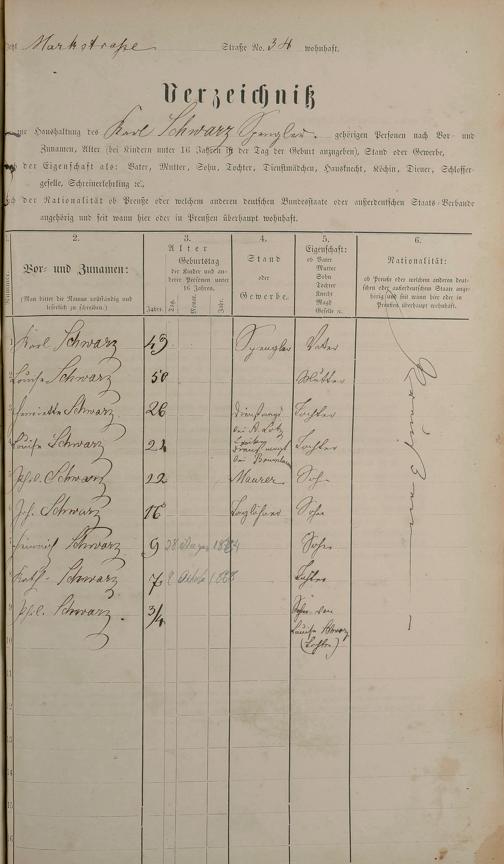 Markstraße Straße No. 34 wohnhaft.
Verzeichniß
zur Haushaltung des Karl Schwarz Spengler. gehörigen Personen nach Vor- und
Zunamen, Alter (bei Kindern unter 16 Jahren ist der Tag der Geburt anzugeben), Stand oder Gewerbe,
der Eigenschaft als: Vater, Mutter, Sohn, Tochter, Dienstmädchen, Hausknecht, Köchin, Diener, Schlosser-
geselle, Schreinerlehrling ꝛc.,
der Nationalität ob Preuße oder welchem anderen deutschen Bundesstaate oder außerdeutschen Staats-Verbande
angehörig und seit wann hier oder in Preußen überhaupt wohnhaft.
1. 2. 3. 4. 5. 6.
Nummer.
Vor- und Zunamen:
(Man bittet die Namen vollständig und
leserlich zu schreiben.)
Alter
Geburtstag
der Kinder und an-
derer Personen unter
16 Jahren.
Jahre. Tag. Monat. Jahr.
Stand
oder
Gewerbe.
Eigenschaft:
ob Vater
Mutter
Sohn
Tochter
Knecht
Magd
Geselle ꝛc.
Nationalität:
ob Preuße oder welchem anderen deut-
schen oder außerdeutschen Staate ange-
hörig und seit wann hier oder in
Preußen überhaupt wohnhaft.
1 Karl Schwarz 49 Spengler Vater
2 Louise Schwarz 50 Mutter
3 Henriette Schwarz 26 Dienstmagd Tochter
bei A. Lotz
Louise Schwarz 24 Tochter
bei
Phil. Schwarz 22 Maurer Sohn
Joh. Schwarz 16 Taglöhner Sohn
Heinrich Schwarz 9 Sohn
Kath. Schwarz 7 Tochter
9 Phil. Schwarz. 3/4 Sohn von
10 Louise Schwarz
(Tochter)
14
15
16